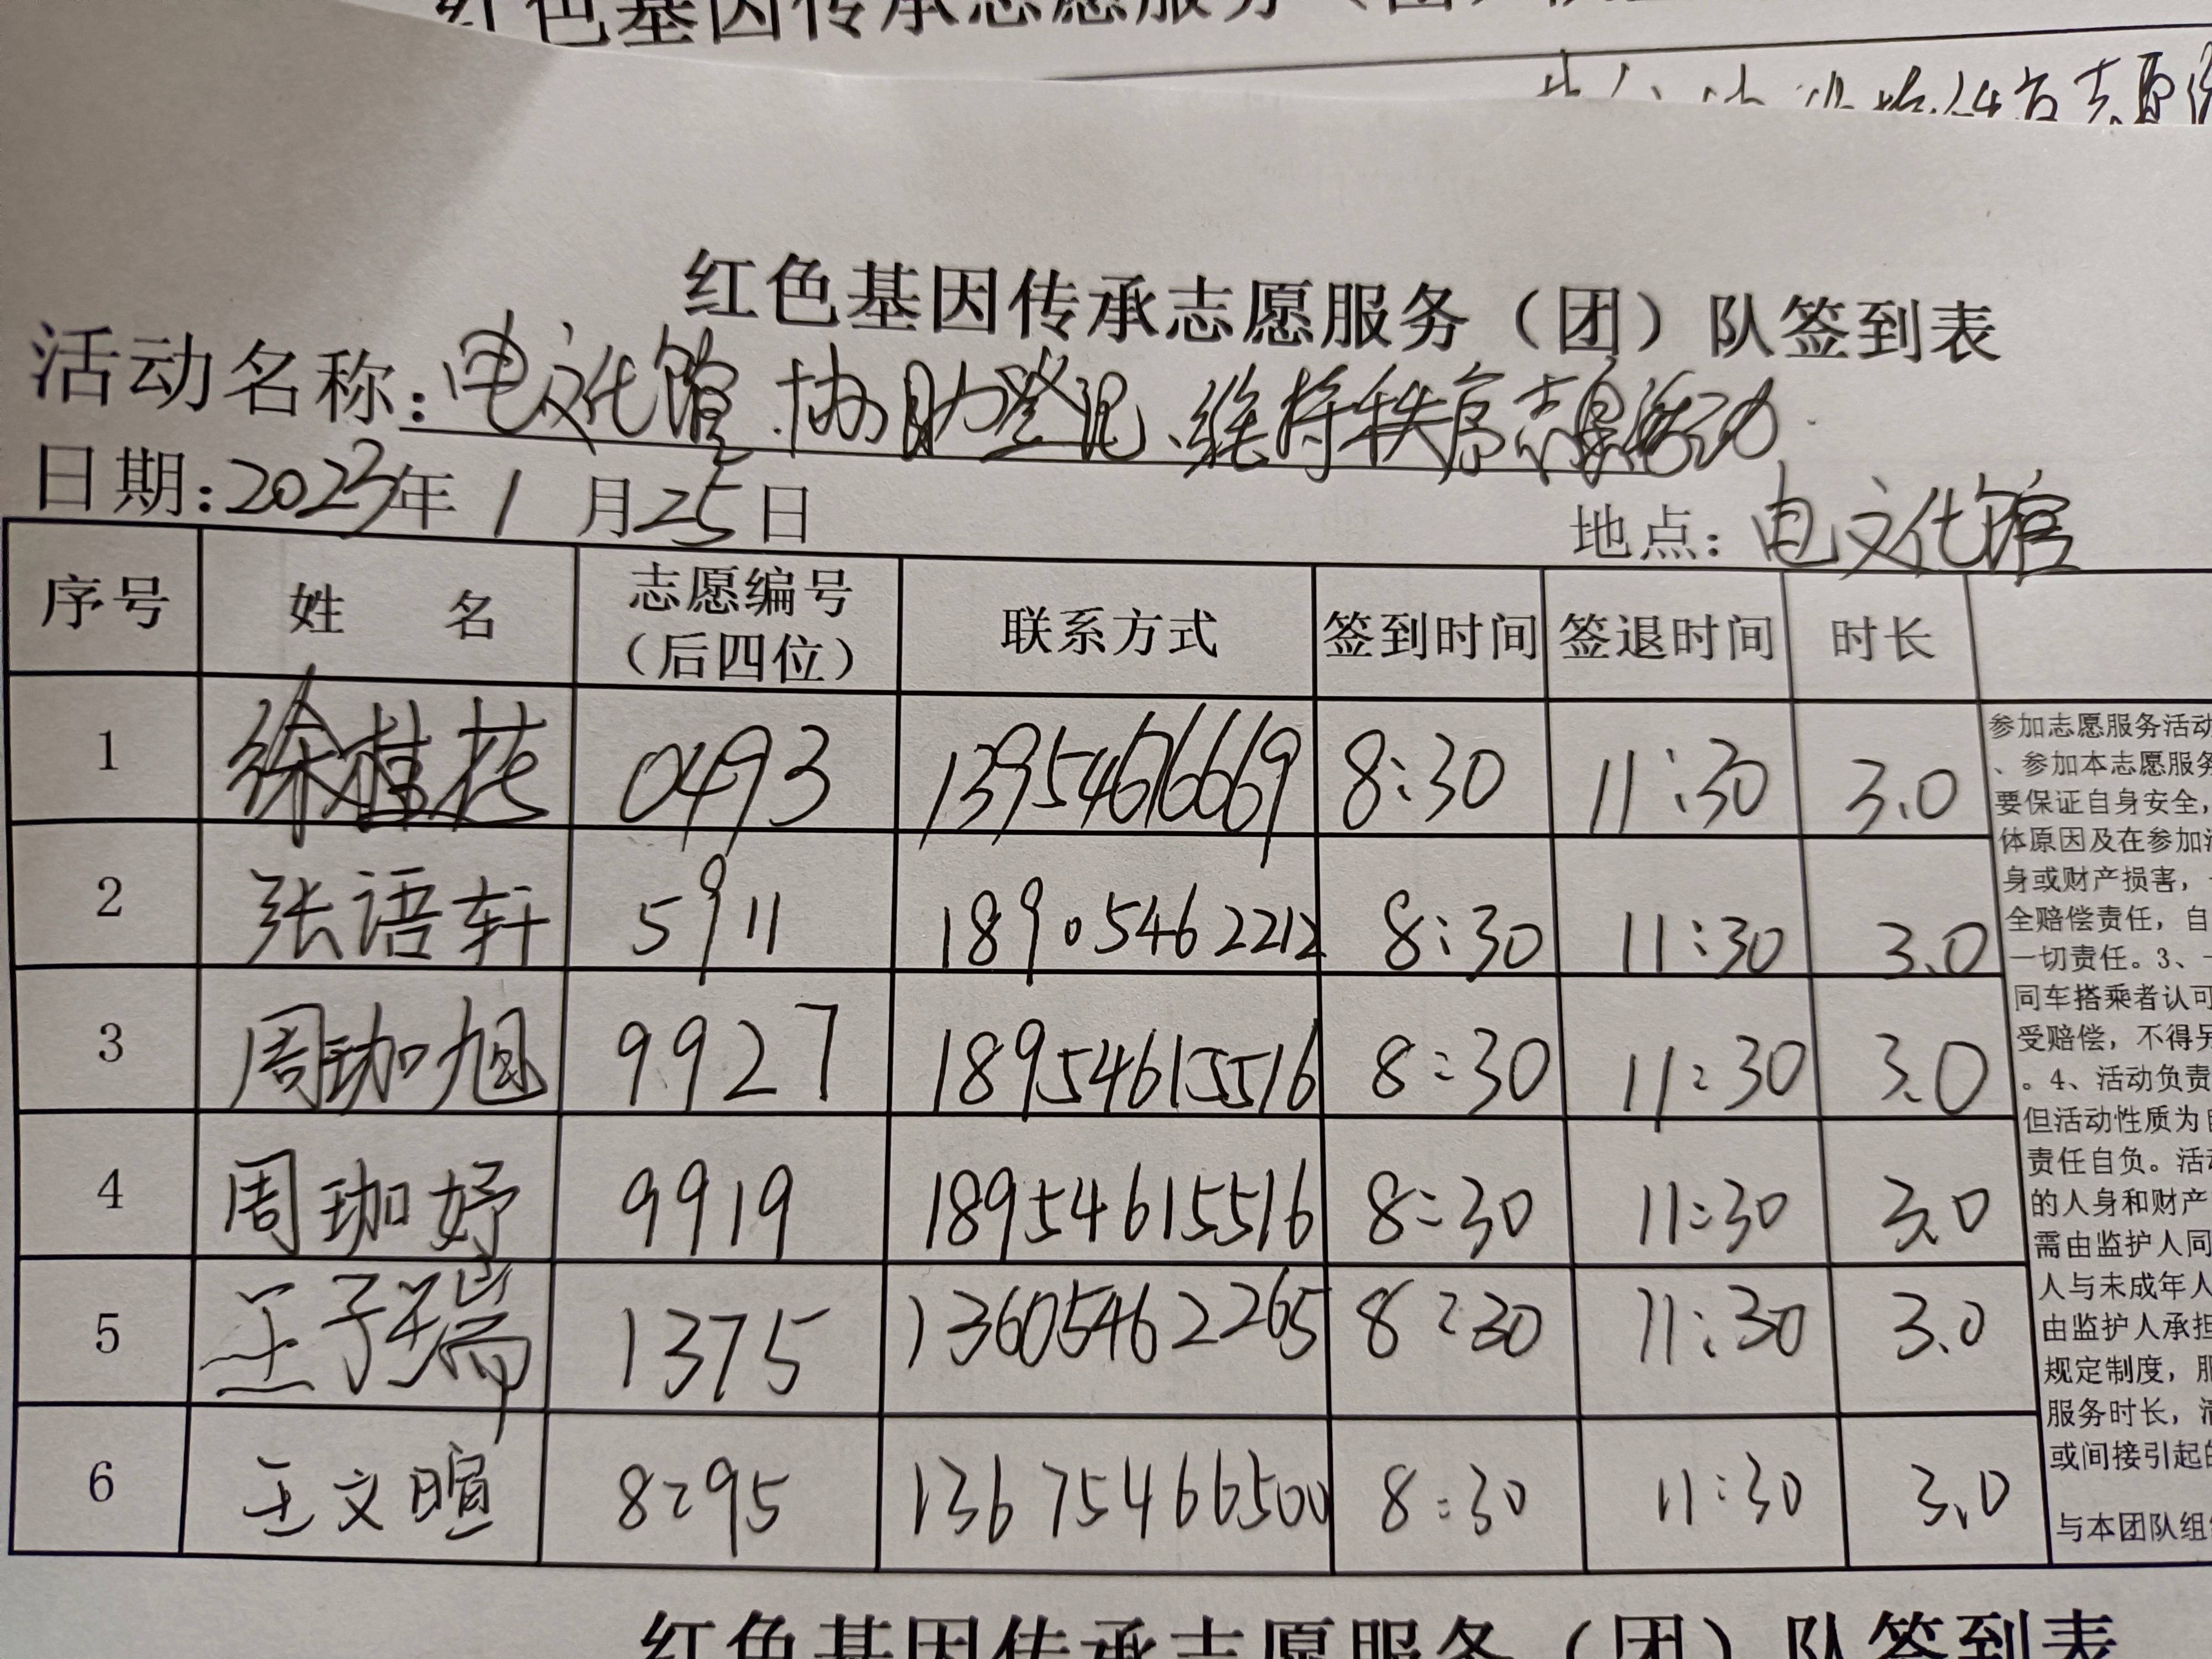 红色基因传承志愿服务（团）
红色基因传承志愿服务（团）队签到表
活动名称：电文化馆、协助登记、维持秩序志愿活动
日期：2023年1月25日 地点：电文化馆
序号 姓 名 志愿编号（后四位） 联系方式 签到时间 签退时间 时长
1 徐桂花 0493 13954676669 8:30 11:30 3.0
2 张语轩 5911 18905462212 8:30 11:30 3.0
3 周珈旭 9927 18954615516 8:30 11:30 3.0
4 周珈妤 9919 18954615516 8:30 11:30 3.0
5 王子瑞 1375 13605462265 8:30 11:30 3.0
6 王文暄 8295 13675466500 8:30 11:30 3.0
参加志愿服务活动
、参加本志愿服务
要保证自身安全，
体原因及在参加活
身或财产损害，
全赔偿责任，自
一切责任。3、
同车搭乘者认可
受赔偿，不得另
。4、活动负责
但活动性质为自
责任自负。活动
的人身和财产
需由监护人同
人与未成年人
由监护人承担
规定制度，服
服务时长，满
或间接引起的
与本团队组织
红色基因传承志愿服务（团）队签到表